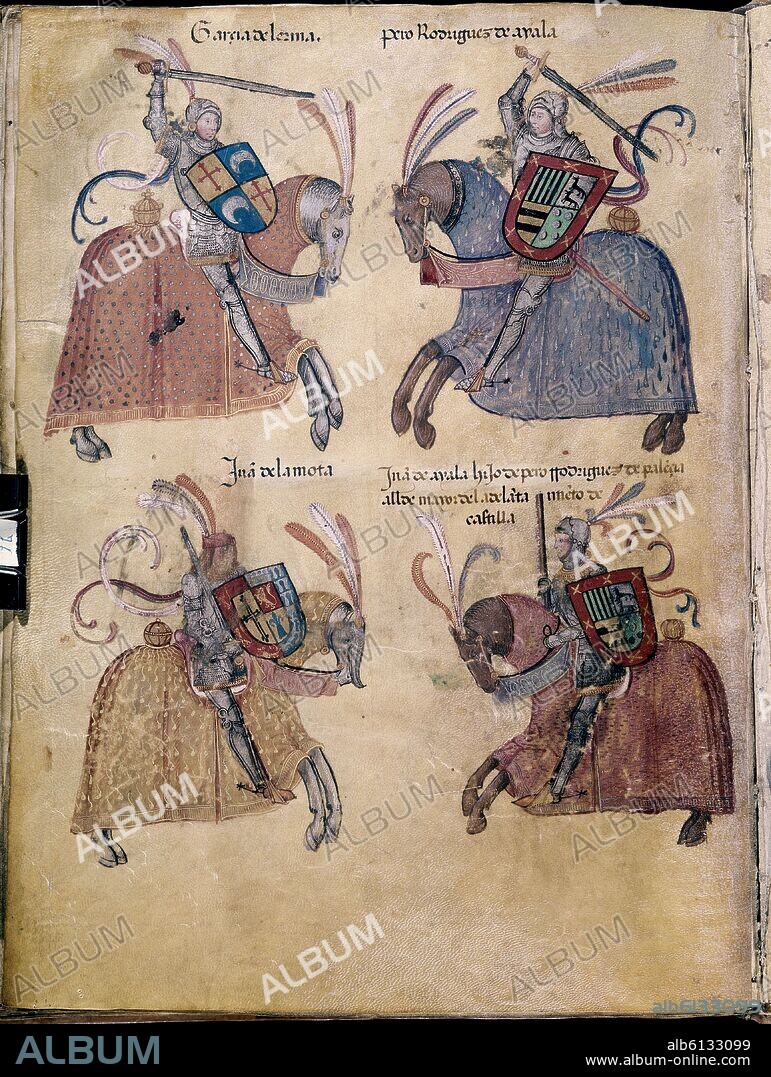 Garçia de lerma.
pero Rodriguez de ayala
Juā de la mota
Juā de ayala hijo de pero Rodriguez de
all de mayor del adelāta mieto de
castilla
ALBUM
alb6133099
ALBUM
alb6133099
www.album-online.com